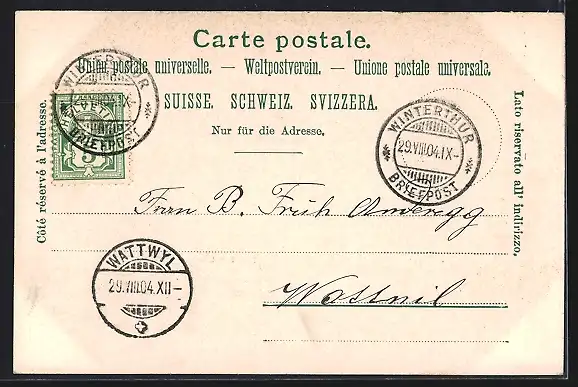 Carte postale.
Union postale universelle. — Weltpostverein. — Unione postale universale.
SUISSE. SCHWEIZ. SVIZZERA.
Nur für die Adresse.
Côté réservé à l'adresse.
Lato riservato all' indirizzo.
WINTERTHUR
BRIEFPOST
HELVETIA
5
WINTERTHUR
29.VIII.04.IX–
BRIEFPOST
Frau B. Früh Anderegg
WATTWYL
29.VIII.04.XII–
Wattwil